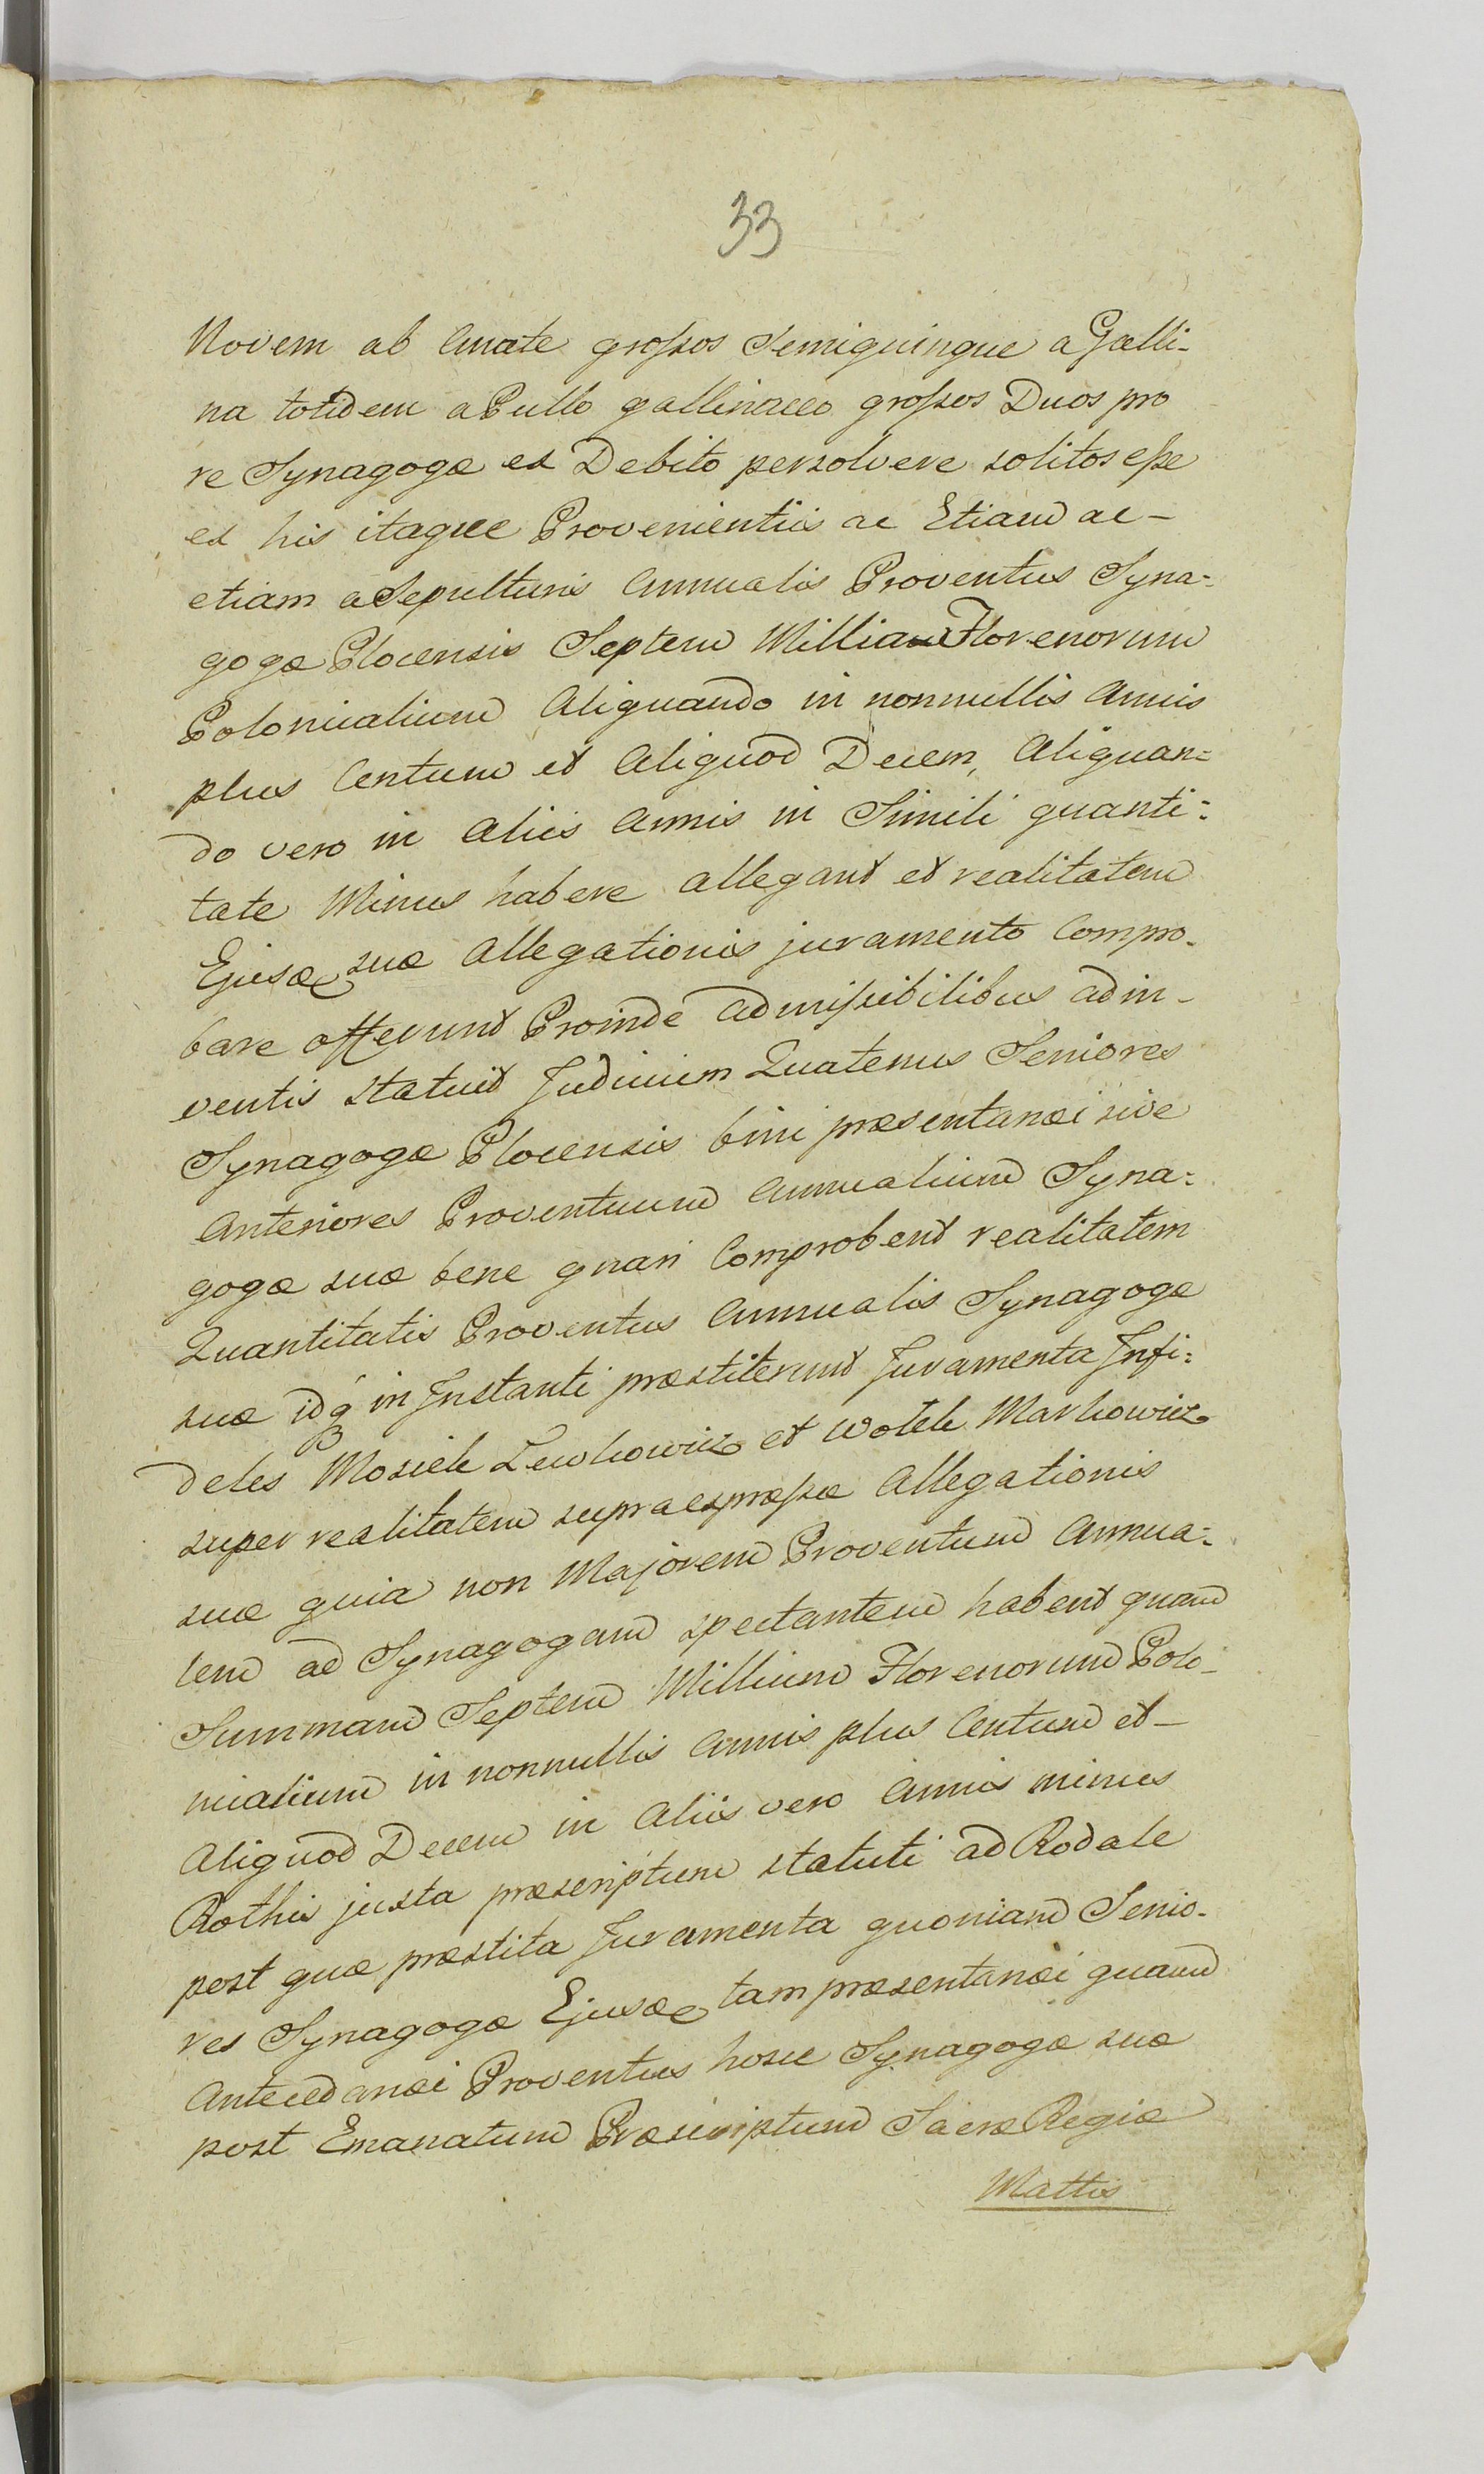 33
Novem ab Anate groſsos Semiquinque a Galli-
na totidem a Pullo gallinaceo groſsos Duos pro
re Synagogæ ex Debito persolvere solitos eſse
ex his itaque Provenientiis ac Etiam ac-
etiam a Sepulturis Annualis Proventus Syna=
gogæ Plocensis Septem Millia Florenorum
Polonicalium Aliquando in nonnullis Annis
plus Centum et Aliquod Decem, Aliquan=
do vero in Aliis Annis in Simili quanti=
tate Minus habere allegant et realitatem
Ejusdē suæ Allegationis juramento Compro-
bare offerunt Proinde admiſsibilibus adin-
ventis statuit Judicium Quatenus Seniores
Synagogæ Plocensis bini præsentanei sive
Anteriores Proventuum Annualium Syna=
gogæ suæ bene gnari Comprobent realitatem
Quantitatis Proventus Annualis Synagogæ
suæ idq́ in Instanti præstiterunt Juramenta Infi=
deles Mosiek Lewkowicz et Wolek Markowicz
super realitatem supraexpreſsæ Allegationis
suæ quia non Majorem Proventum Annua=
lem ad Synagogam spectantem habent quam
Summam Septem Millium Florenorum Polo-
nicalium in nonnullis Annis plus Centum et-
Aliquod Decem in Aliis vero Annis minus
Rothis juxta præscriptum statuti ad Rodale
post quæ præstita Juramenta quoniam Senio-
res Synagogæ Ejusdē tam præsentanei quam
Antecedanei Proventus hosce Synagogæ suæ
post Emanatum Præscriptum Sacræ Regiæ
Mattis